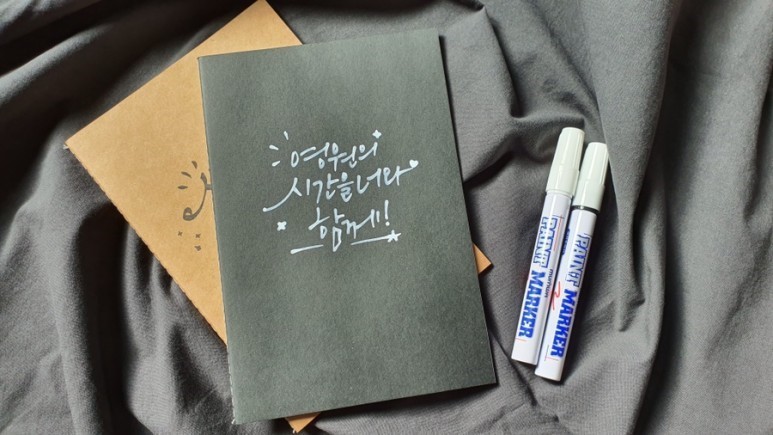 영원의
시간을 너와
함께!
PAINT MARKER
PAINT MARKER